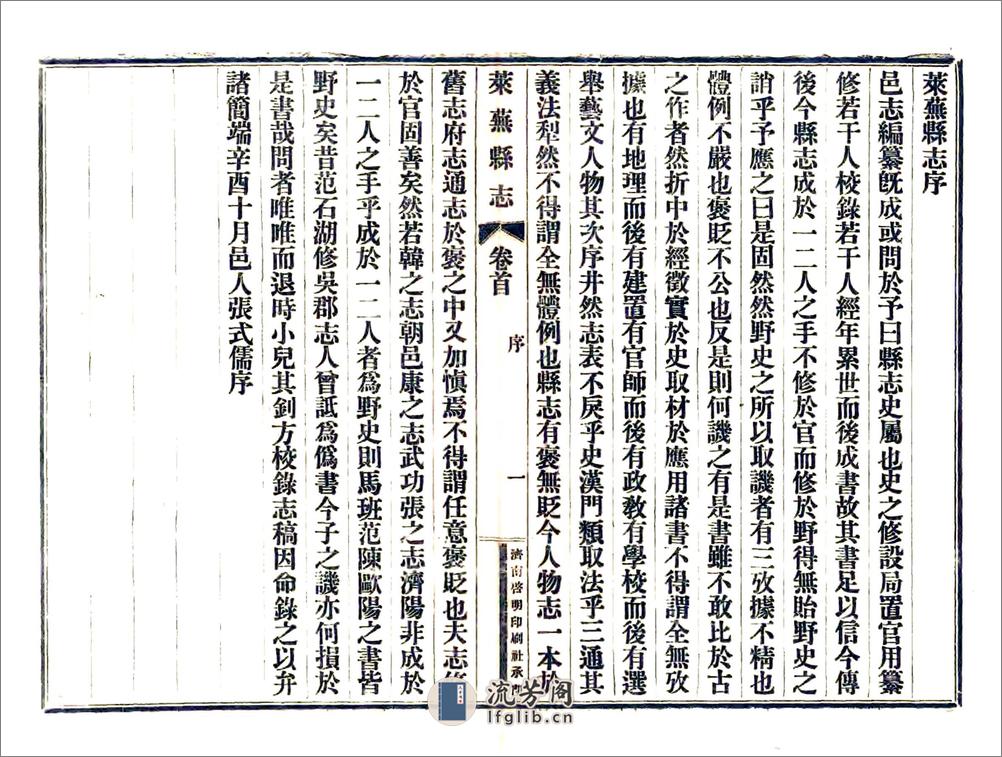 萊蕪縣志序
邑志編纂旣成或問於予曰縣志史屬也史之修設局置官用纂
修若干人校錄若干人經年累世而後成書故其書足以信今傳
後今縣志成於一二人之手不修於官而修於野得無貽野史之
誚乎予應之曰是固然然野史之所以取譏者有三攷據不精也
體例不嚴也褒貶不公也反是則何譏之有是書雖不敢比於古
之作者然折中於經徵實於史取材於應用諸書不得謂全無攷
據也有地理而後有建置有官師而後有政敎有學校而後有選
舉藝文人物其次序井然志表不戾乎史漢門類取法乎三通其
義法犁然不得謂全無體例也縣志有褒無貶今人物志一本於
萊蕪縣志
卷首
序
一
濟南啓明印刷社承
舊志府志通志於褒之中又加慎焉不得謂任意褒貶也夫志修
於官固善矣然若韓之志朝邑康之志武功張之志濟陽非成於
一二人之手乎成於一二人者爲野史則馬班范陳歐陽之書皆
野史矣昔范石湖修吳郡志人曾詆爲僞書今子之譏亦何損於
是書哉問者唯唯而退時小兒其釗方校錄志稿因命錄之以弁
諸簡端辛酉十月邑人張式儒序
流芳阁
lfglib.cn